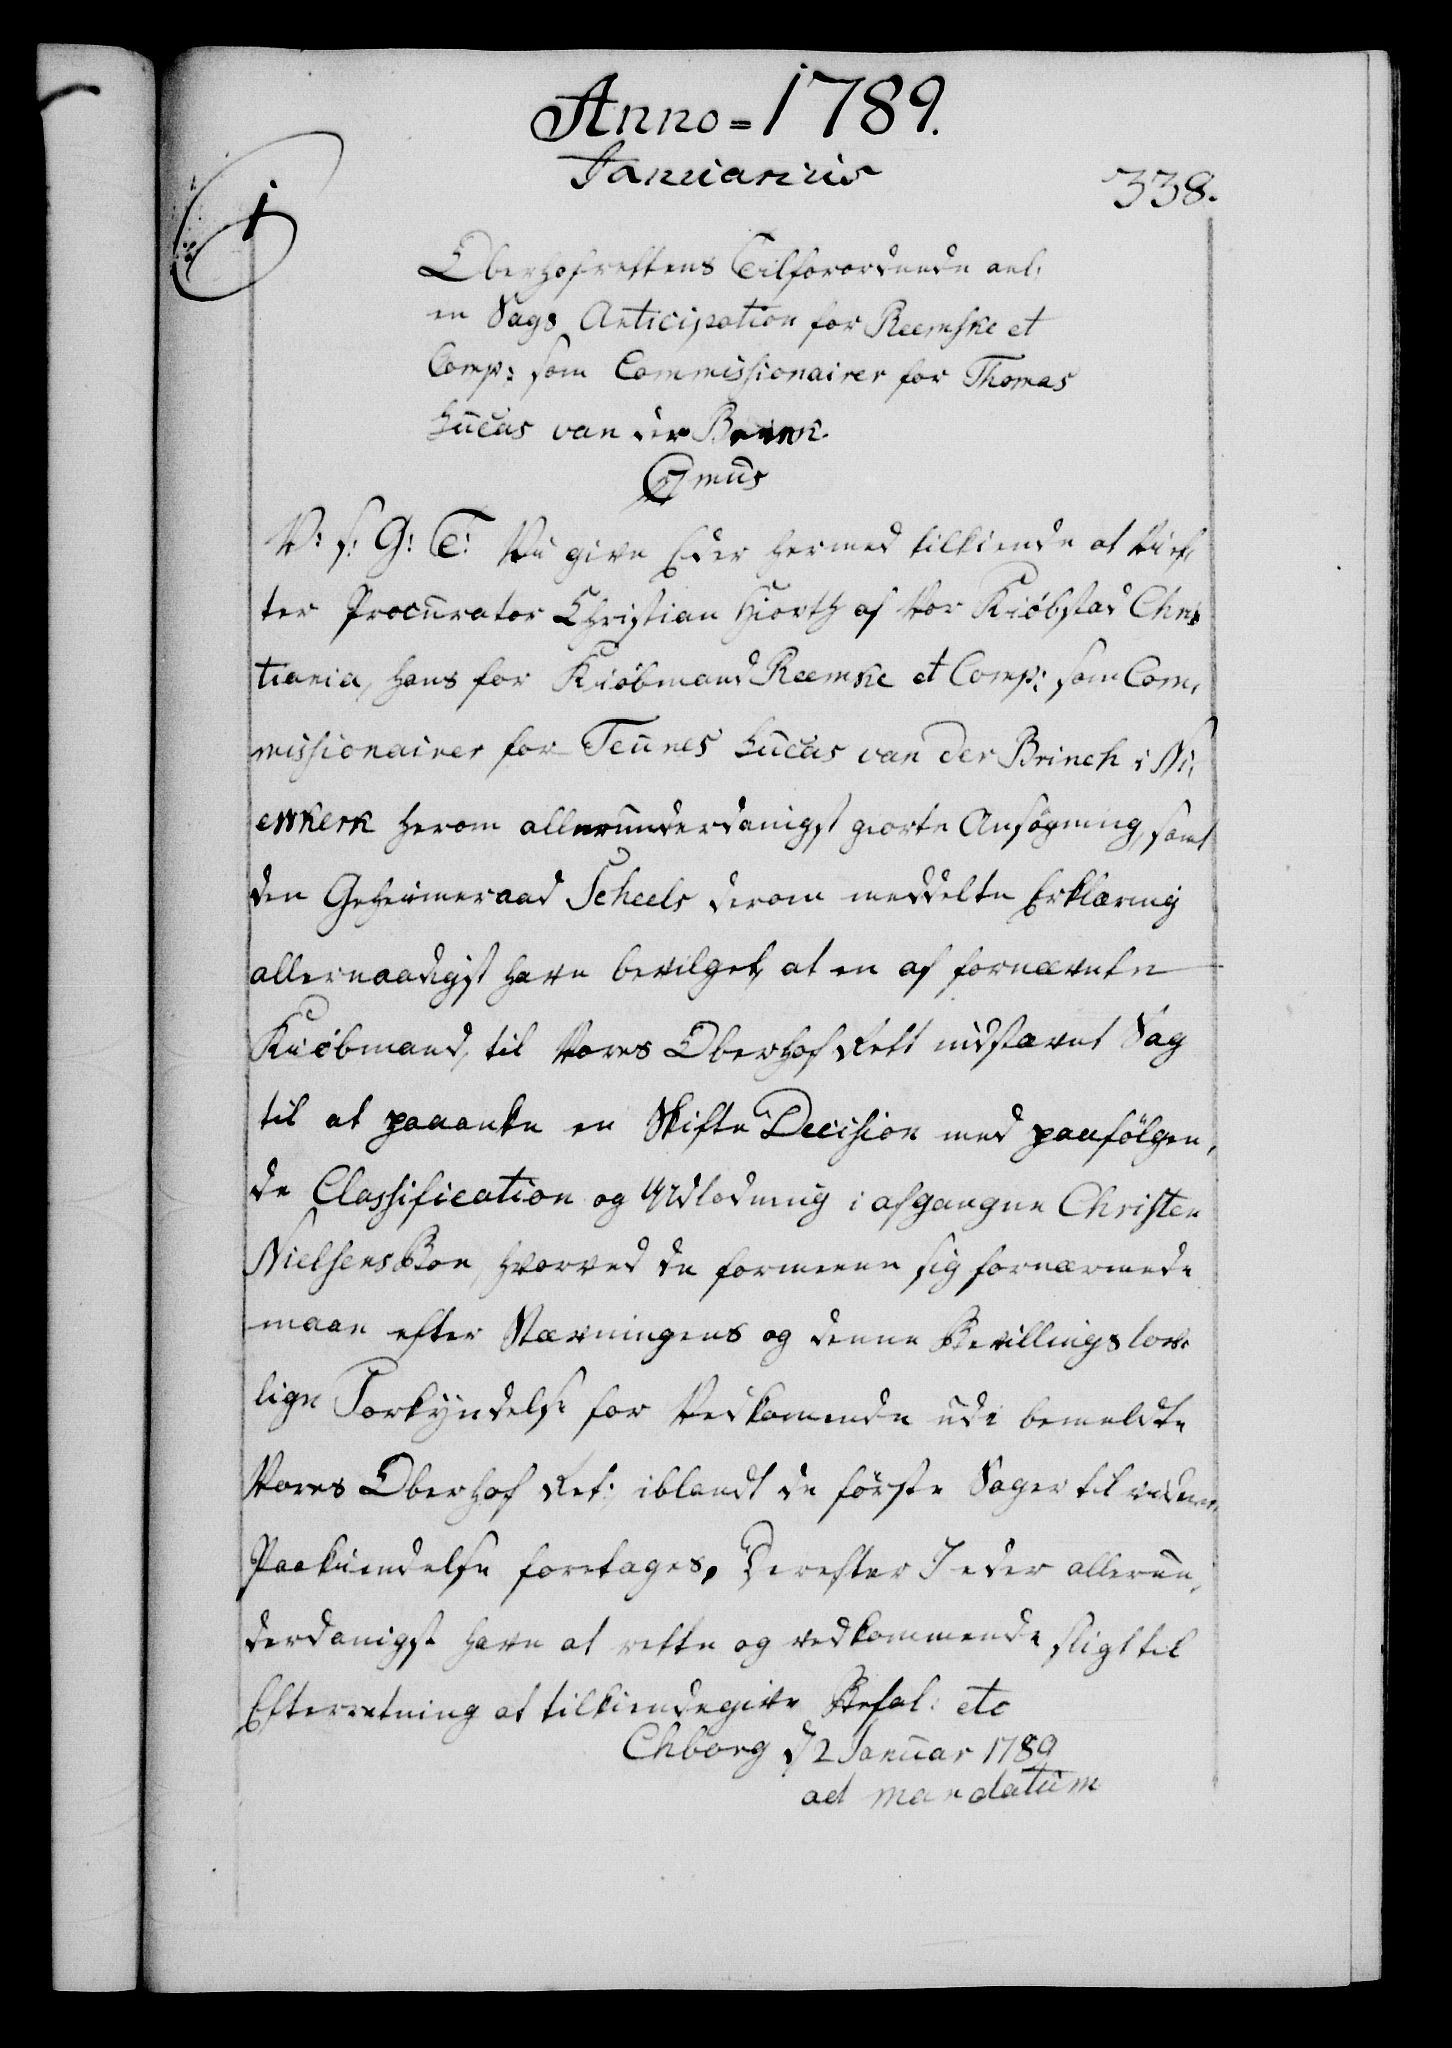 Anno = 1789.
Januarius
338.
1
Oberhofrettens Tilforordnede anl:
en Sags Anticipation for Reemske et
Comp: som Commissionairer for Thomas
Lucas van der Brink.
C7mus
V: s: G: T: Vi give Eder hermed tilkiende at Vi ef,
ter Procurator Christian Hiorth af Vor Kiøbstad Chris
tiania, hans for Kiøbmand Reemke et Comp: som Com,
missionairer for Teunes Lucas van der Brinch i Ni,
ewkerk herom allerunderdanigst giorte Ansøgning, samt
den Geheimeraad Scheels derom meddelte Erklæring
allernaadigst have bevilget, at en af fornævnte
Kiøbmand, til Vores Oberhof Rett indstævnt Sag
til at paaanke en Skifte Decision med paafølgen,
de Classification og Udlodning i afgangne Christen
Nielsens Boe, hvorved de formeene sig fornærmede
maae efter Stævningens og denne Bevillings lov:
lige Forkyndelse for Vedkommende udi bemeldte
Vores Oberhof Ret, iblandt de første Sager til
Paakiendelse foretages. Derefter I eder allerun,
derdanigst have at rette og vedkommende sligt til
Efterretning at tilkiendegive Befal: etc
Chborg d 2 Januar 1789
ad mandatum